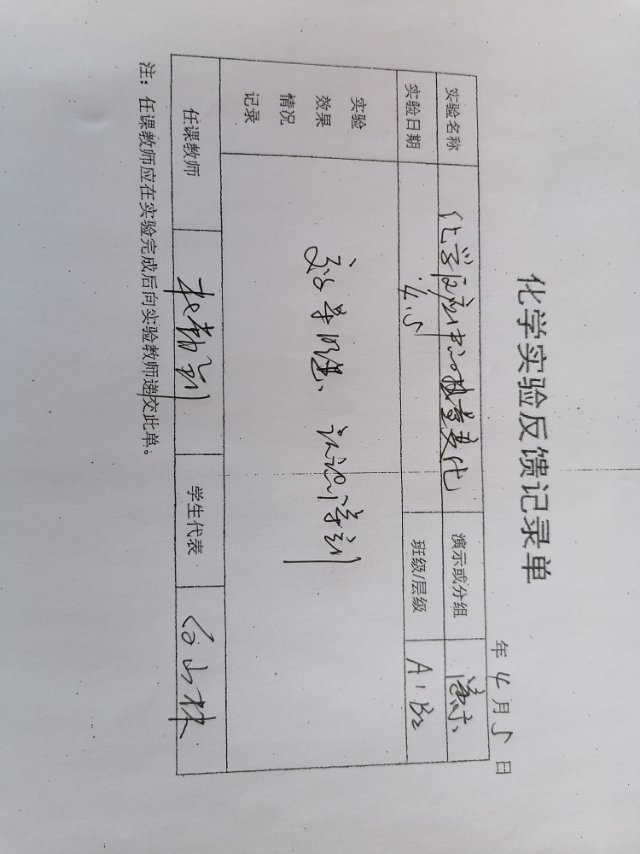 化学实验反馈记录单
年4月5日
实验名称 化学反应中的热量变化 演示或分组 演示
实验日期 4.5 班级/层级 A1B2
实验
效果
情况
记录
效果明显、认识深刻
任课教师 学生代表
注：任课教师应在实验完成后向实验教师递交此单。